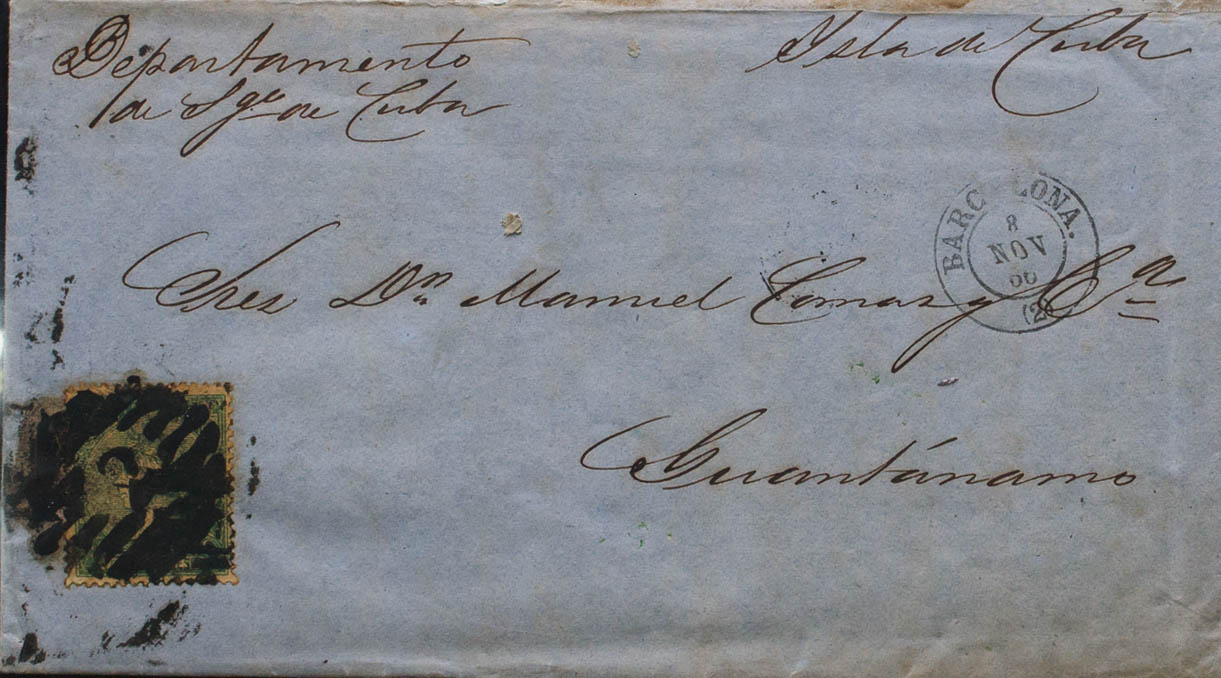 Departamento
de Sgo de Cuba
Isla de Cuba
BARCELONA.
8
NOV
66
(2)
Sres Dn Manuel Comas y Ca
Guantánamo